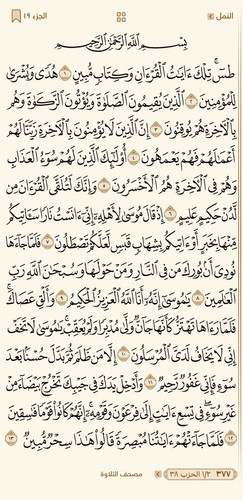 النمل
الجزء ١٩
بِسْمِ ٱللَّهِ ٱلرَّحْمَٰنِ ٱلرَّحِيمِ
طسٓۚ تِلْكَ ءَايَٰتُ ٱلْقُرْءَانِ وَكِتَابٍ مُّبِينٍ ١ هُدًى وَبُشْرَىٰ
لِلْمُؤْمِنِينَ ٢ ٱلَّذِينَ يُقِيمُونَ ٱلصَّلَوٰةَ وَيُؤْتُونَ ٱلزَّكَوٰةَ وَهُم
بِٱلْءَاخِرَةِ هُمْ يُوقِنُونَ ٣ إِنَّ ٱلَّذِينَ لَا يُؤْمِنُونَ بِٱلْءَاخِرَةِ زَيَّنَّا لَهُمْ
أَعْمَٰلَهُمْ فَهُمْ يَعْمَهُونَ ٤ أُو۟لَٰٓئِكَ ٱلَّذِينَ لَهُمْ سُوٓءُ ٱلْعَذَابِ
وَهُمْ فِى ٱلْءَاخِرَةِ هُمُ ٱلْأَخْسَرُونَ ٥ وَإِنَّكَ لَتُلَقَّى ٱلْقُرْءَانَ مِن
لَّدُنْ حَكِيمٍ عَلِيمٍ ٦ إِذْ قَالَ مُوسَىٰ لِأَهْلِهِۦٓ إِنِّىٓ ءَانَسْتُ نَارًا سَـَٔاتِيكُم
مِّنْهَا بِخَبَرٍ أَوْ ءَاتِيكُم بِشِهَابٍ قَبَسٍ لَّعَلَّكُمْ تَصْطَلُونَ ٧ فَلَمَّا جَآءَهَا
نُودِىَ أَنۢ بُورِكَ مَن فِى ٱلنَّارِ وَمَنْ حَوْلَهَا وَسُبْحَٰنَ ٱللَّهِ رَبِّ
ٱلْعَٰلَمِينَ ٨ يَٰمُوسَىٰٓ إِنَّهُۥٓ أَنَا ٱللَّهُ ٱلْعَزِيزُ ٱلْحَكِيمُ ٩ وَأَلْقِ عَصَاكَۚ
فَلَمَّا رَءَاهَا تَهْتَزُّ كَأَنَّهَا جَآنٌّ وَلَّىٰ مُدْبِرًا وَلَمْ يُعَقِّبْۚ يَٰمُوسَىٰ لَا تَخَفْ
إِنِّى لَا يَخَافُ لَدَىَّ ٱلْمُرْسَلُونَ ١٠ إِلَّا مَن ظَلَمَ ثُمَّ بَدَّلَ حُسْنًۢا بَعْدَ
سُوٓءٍ فَإِنِّى غَفُورٌ رَّحِيمٌ ١١ وَأَدْخِلْ يَدَكَ فِى جَيْبِكَ تَخْرُجْ بَيْضَآءَ مِنْ
غَيْرِ سُوٓءٍۖ فِى تِسْعِ ءَايَٰتٍ إِلَىٰ فِرْعَوْنَ وَقَوْمِهِۦٓۚ إِنَّهُمْ كَانُوا۟ قَوْمًا فَٰسِقِينَ
١٢ فَلَمَّا جَآءَتْهُمْ ءَايَٰتُنَا مُبْصِرَةً قَالُوا۟ هَٰذَا سِحْرٌ مُّبِينٌ ١٣
٣٧٧ ١/٢ الحزب ٣٨ مصحف التلاوة